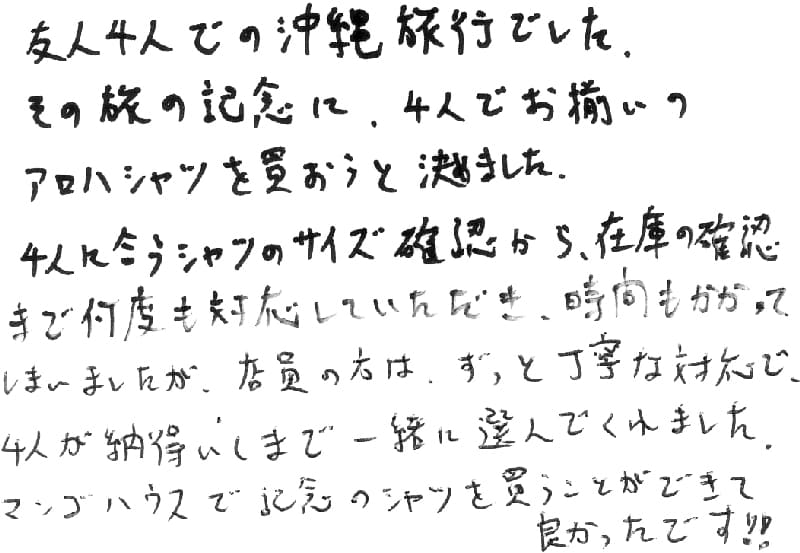 友人4人での沖縄旅行でした.
その旅の記念に、4人でお揃いの
アロハシャツを買おうと決めました.
4人に合うシャツのサイズ確認から、在庫の確認
まで何度も対応していただき、時間もかかって
しまいましたが、店員の方は、ずっと丁寧な対応で、
4人が納得いくまで一緒に選んでくれました.
マンゴハウスで記念のシャツを買うことができて
良かったです!!